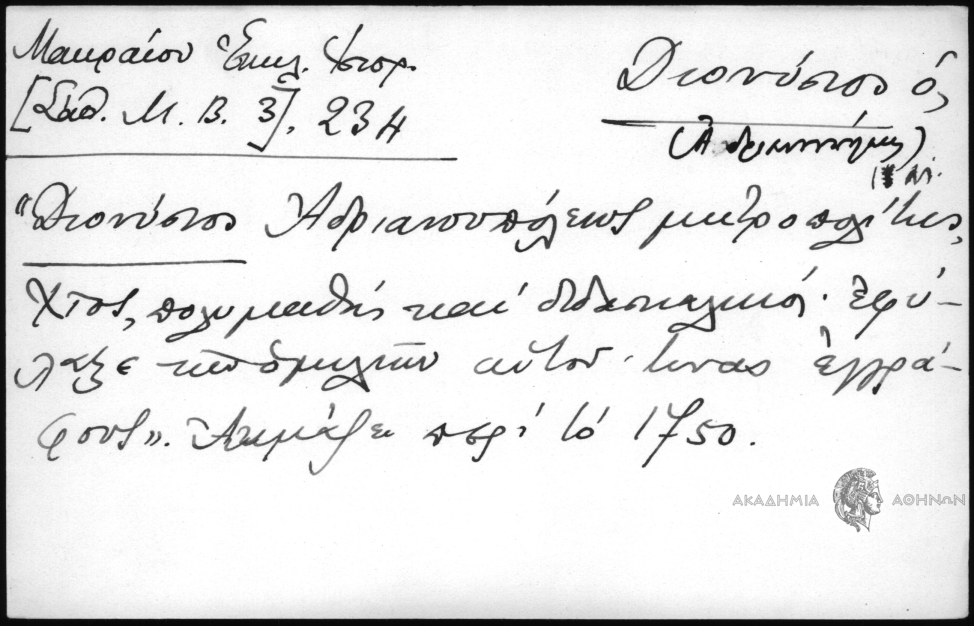 Μακραίου Ἐκκλ. Ἱστορ.
[Σάθ. Μ. Β. 3], 234
Διονύσιος ὁ,
(Ἀδριανουπόλεως)
"Διονύσιος Ἀδριανουπόλεως μητροπολίτης,
Χῖος, πολυμαθής καί διδασκαλικός· ἐφύ-
λαξε τῶν ὁμιλιῶν αὐτοῦ τινας ἐγγρά-
φους". Ἀκμάζει περί τό 1750.
ΑΚΑΔΗΜΙΑ ΑΘΗΝΩΝ